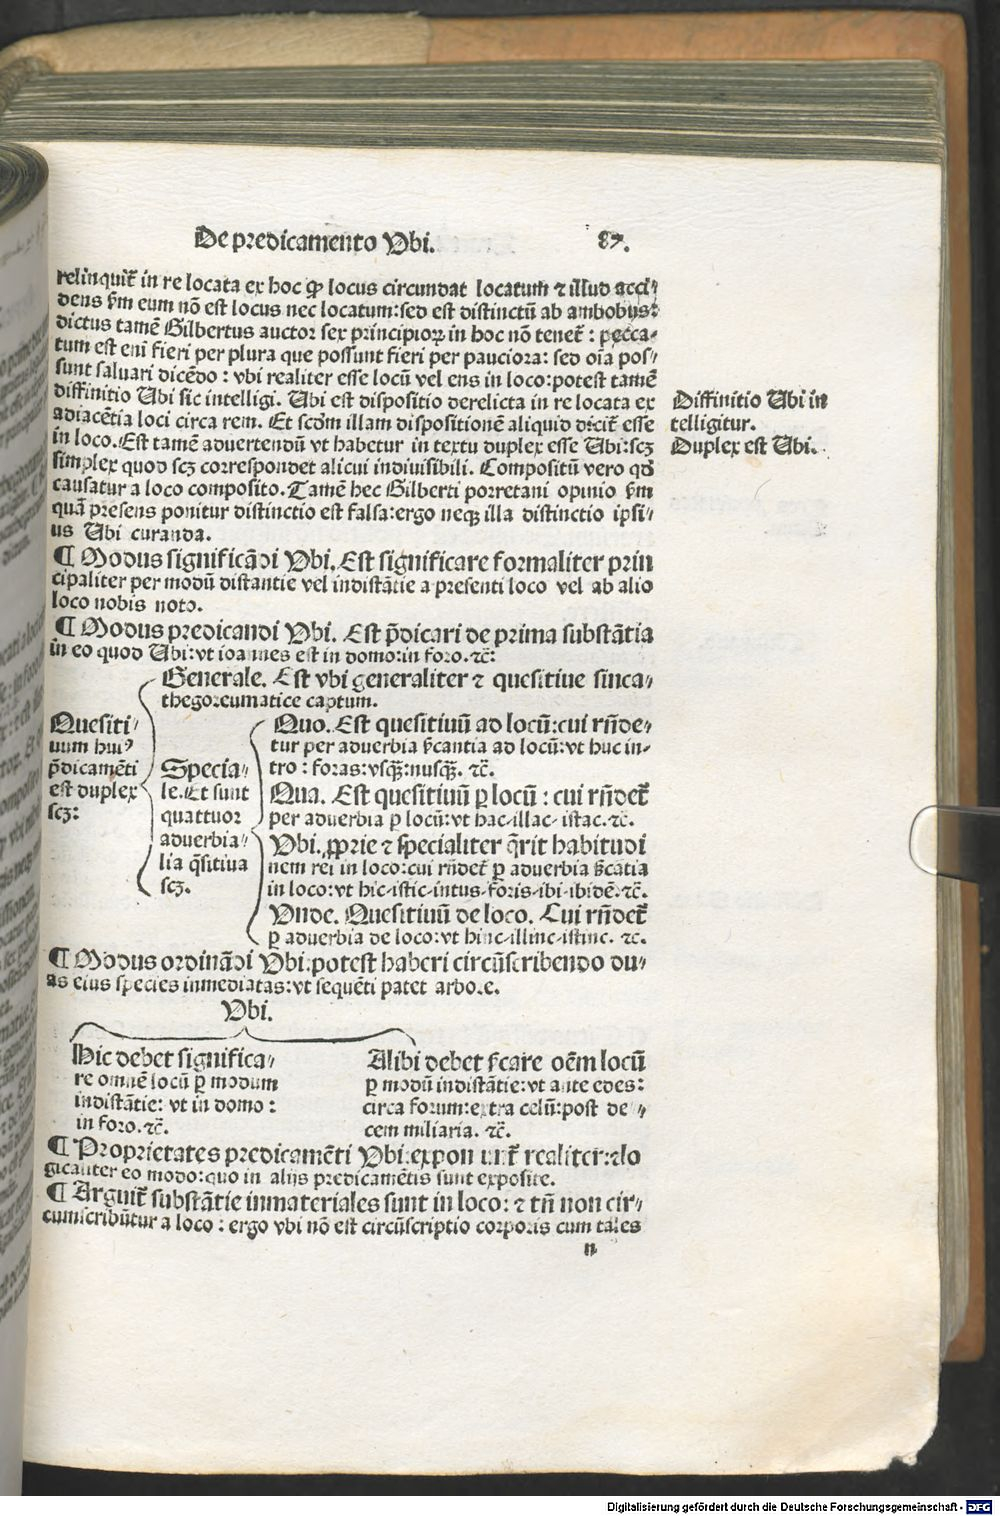 De predicamento Ubi. 87.
relinquit̃ in re locata ex hoc ꝙ locus circundat locatum ⁊ illud acci⸗
dens ẜm eum nō est locus nec locatum: sed est distinctū ab ambobus:
dictus tamē Gilbertus auctor sex principioꝝ in hoc nō tenet̃: pecca⸗
tum est eni fieri per plura que possunt fieri per pauciora: sed oīa pos⸗
sunt saluari dicēdo: vbi realiter esse locū vel ens in loco: potest tamē
diffinitio Ubi sic intelligi. Ubi est dispositio derelicta in re locata ex
adiacētia loci circa rem. Et scḋm illam dispositionē aliquid dicit̃ esse
in loco. Est tamē aduertendū vt habetur in textu duplex esse Ubi: scꝫ
simplex quod scꝫ correspondet alicui indiuisibili. Compositū vero qḋ
causatur a loco composito. Tamē hec Gilberti porretani opinio ẜm
quā presens ponitur distinctio est falsa: ergo neqꝫ illa distinctio ipsi⸗
us Ubi curanda.
Diffinitio Ubi in
telligitur.
Duplex est Ubi.
¶ Modus significādi Ubi. Est significare formaliter prin
cipaliter per modū distantie vel indistātie a presenti loco vel ab alio
loco nobis noto.
¶ Modus predicandi Ubi. Est p̄dicari de prima substātia
in eo quod Ubi: vt ioannes est in domo: in foro. ⁊c̃:
Quesiti⸗
uum huiꝰ
p̄dicamēti
est duplex
scꝫ:
Generale. Est vbi generaliter ⁊ quesitiue sinca⸗
thegoreumatice captum.
Specia⸗
le. Et sunt
quattuor
aduerbia⸗
lia q̄sitiua
scꝫ.
Quo. Est quesitiuū ad locū: cui rn̄de⸗
tur per aduerbia ẜcantia ad locū: vt huc in⸗
tro: foras: vsqꝫ: nusqꝫ. ⁊c̃.
Qua. Est quesitiuū ꝑ locū: cui rn̄det̃
per aduerbia ꝑ locū: vt hac⸗ illac⸗ istac. ⁊c̃.
Ubi. ꝓprie ⁊ specialiter q̄rit habitudi
nem rei in loco: cui rn̄det̃ ꝑ aduerbia ẜcātia
in loco: vt hic⸗ istic⸗ intus⸗ foris⸗ ibi⸗ ibidē. ⁊c̃.
Unde. Quesitiuū de loco. Cui rn̄det̃
ꝑ aduerbia de loco: vt hinc⸗ illinc⸗ istinc. ⁊c.
¶ Modus ordinādi Ubi: potest haberi circūscribendo du⸗
as eius species inmediatas: vt sequēti patet arbore.
Ubi.
Hic debet significa⸗
re omnē locū ꝑ modum
indistātie: vt in domo:
in foro. ⁊c̃.
Alibi debet ẜcare oēm locū
ꝑ modū indistātie: vt ante edes:
circa forum: extra celū: post de⸗
cem miliaria. ⁊c̃.
¶ Proprietates predicamēti Ubi: exponunt̃ realiter: ⁊ lo
gicaliter eo modo: quo in alijs predicamētis sunt exposite.
¶ Arguit̃ substātie inmateriales sunt in loco: ⁊ tn̄ non cir⸗
cumscribūtur a loco: ergo vbi nō est circūscriptio corporis cum tales
n
Digitalisierung gefördert durch die Deutsche Forschungsgemeinschaft - DFG